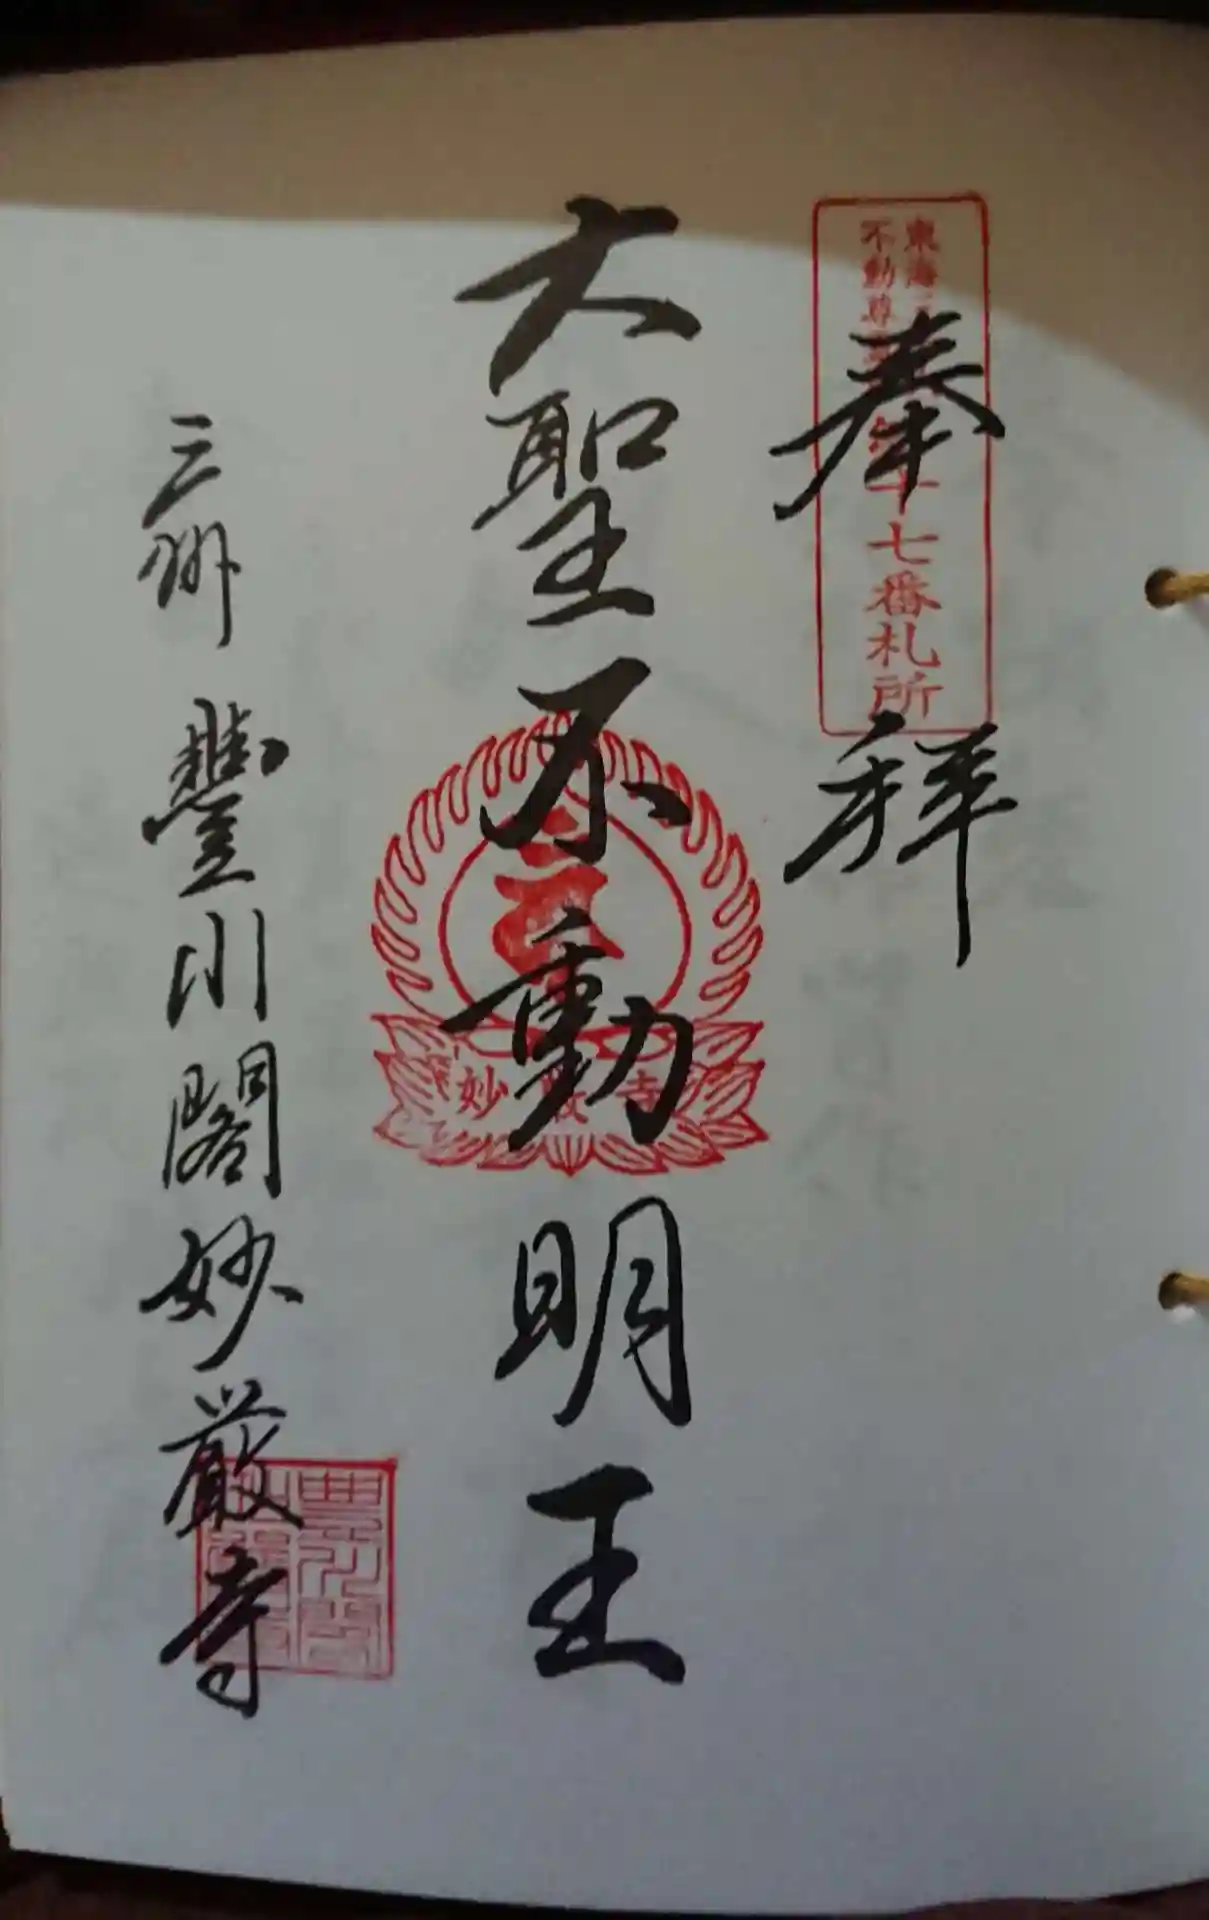 奉拝
東海
不動尊
十七番札所
大聖不動明王
妙嚴寺
三州 豐川閣妙嚴寺